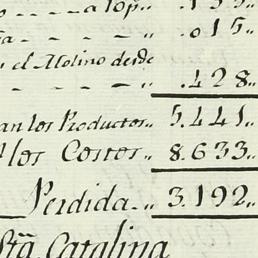 a Top.. .135..
.015..
el Molino desde
.428..
an los Productos.. 5.441..
los Costos.. 8.633..
Perdida.. 3.192..
Sta. Catalina